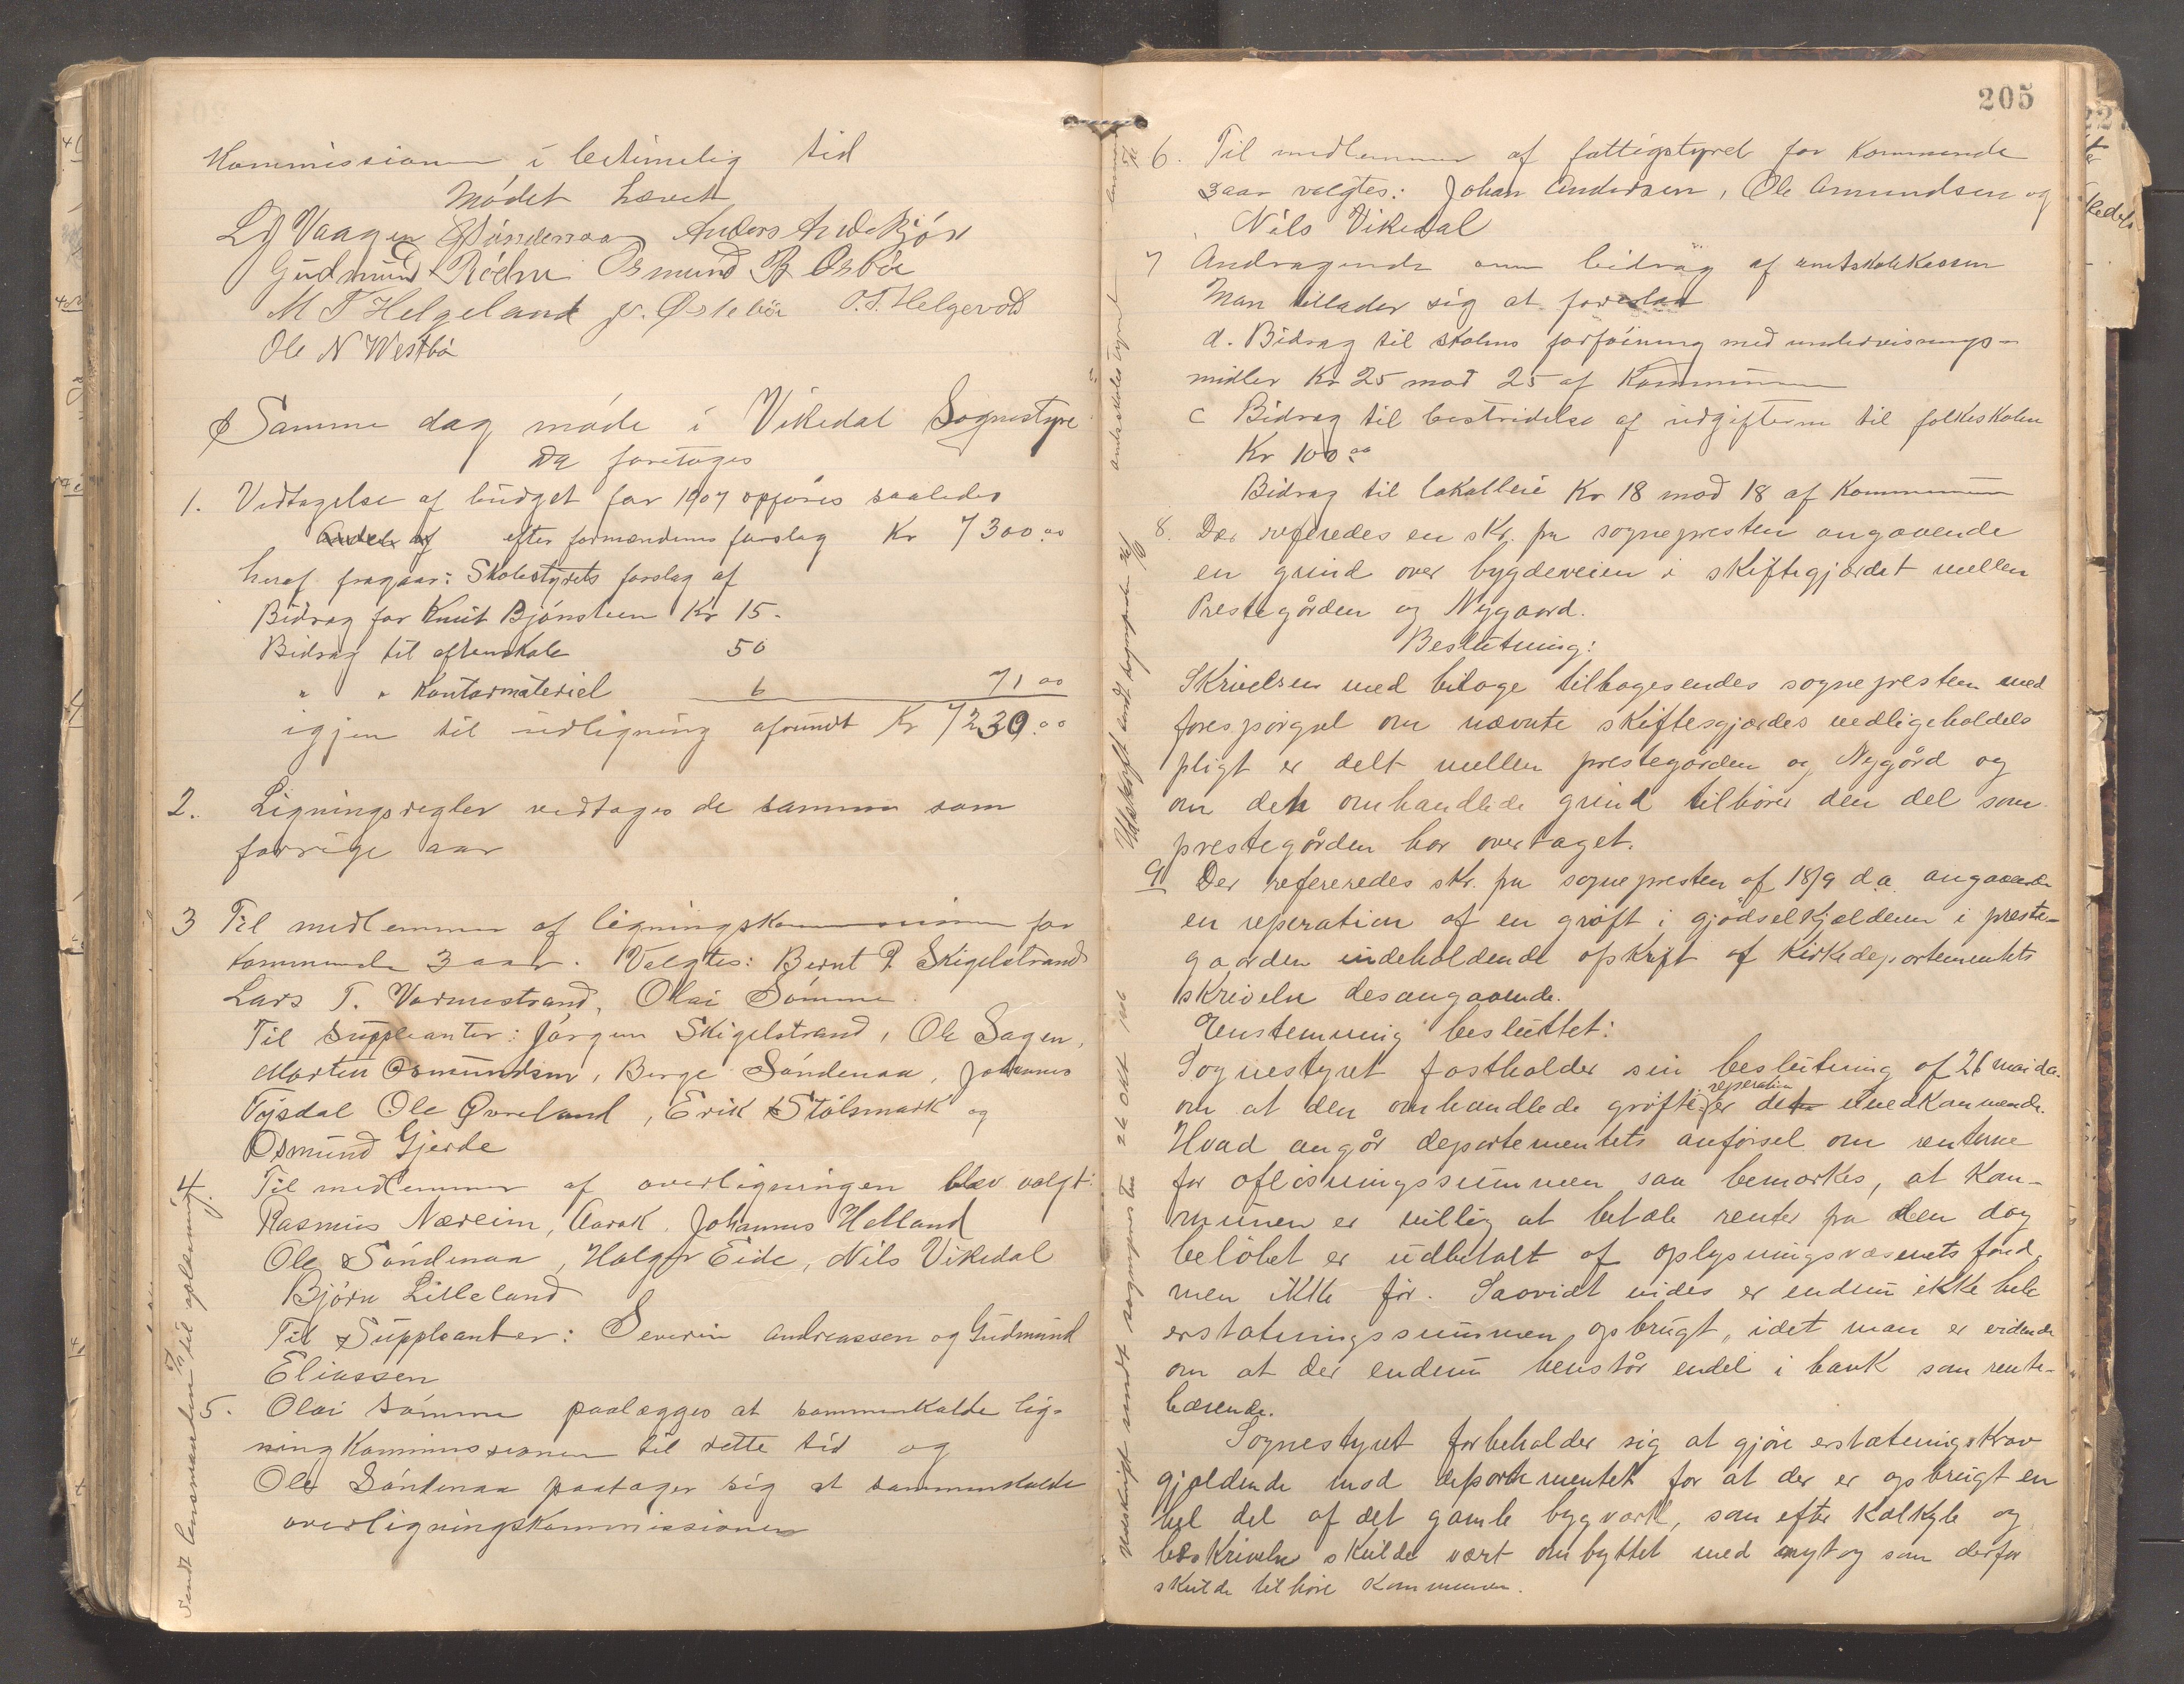 Kommissionen i betimelig tid
Mødet hævet
L J Vaagen O Søndenaa Anders Andebjör
Gudmund Rödne Osmund B Ørbör
M T Helgeland Jr. Østebör O. T. Helgevold
Ole N Westbö
Samme dag møde i Vikedal Sognestyre
Da foretoges
1. Vedtagelse af büdget for 1907 opføres saaledes
Andel af efter formændenes forslag Kr 7300.00
heraf fragaar: Skolestyrets forslag af
Bidrag for Knut Bjönsteen Kr 15.
Bidrag til aftenskole 50
" " Kontormateriel 6 71 00
igjen til udligning afrundt Kr 7230.00
2. Ligningsregler vedtages de samme som
forrige aar
3 Til medlemmer af ligningskommissionen for
kommende 3 aar. Valgtes: Bernt P. Skigelstrand
Lars T. Vormestrand, Olai Sømme.
Til Suppleanter: Jørgen Skigelstrand, Ole Sagen,
Morten Osmundsen, Berge Søndenaa, Johannes
Tysdal Ole Øvreland, Erik Stölsmark og
Osmund Gjerde
4. Til medlemmer af overligningen blev valgt:
Rasmus Næreim, Aarak. Johannes Helland
Ole Søndenaa, Holger Eide, Nils Vikedal
Björn Lilleland
Til Suppleanter: Severin Andreassen og Gudmund
Eliassen
5. Olai Sømme paalægges at sammenkalde lig-
ningkommissionen til rette tid og
Ole Søndenaa paatager sig at sammenkalde
overligningskommissionen
Sendt lensmanden til oplesning
205
6. Til medlemmer af fattigstyret for kommende
3 aar valgtes: Johan Andersen, Ole Amundsen og
Nils Vikedal
7 Andragende om bidrag af amtskolekassen
Man tillader sig at foreslaa
a. Bidrag til skolens forsøining med undervisnings-
midler Kr 25 mod 25 af Kommunen
c Bidrag til bestridelse af udgifterne til folkeskolen
Kr 100 00
Bidrag til lokalleie Kr 18 mod 18 af Kommunen
8. Der refereredes en skr. fra sognepresten angaaende
en grind over bygdeveien i skiftegjærdet mellem
Prestegården og Nygaard.
Beslutning:
Skrivelsen med bilage tilbagesendes sognepresten med
forespørgsel om nævnte skiftesgjærdes vedligeholdels
pligt er delt mellem prestegården og Nygård og
om den omhandlede grind tilhører den del som
prestegården har overtaget.
9 Der refereredes skr. fra sognepresten af 18/9 d.a. angaaende
en reperation af en grøft i gjødselkjælderen i preste-
gaarden indeholdende afskrift af Kirkedepartementets
skriveln desangaaende.
Enstemmig besluttet:
Sognestyret fastholder sin beslutning af 26 mai da.
reperation
om at den omhandlede grøft er det uvedkommende.
Hvad angår departementets anførsel om renterne
for afløsningssummen saa bemærkes, at kom-
munen er villig at betale renter fra den dag
beløbet er udbetalt af oplysningsvæsenets fond,
men ikke før. Saavidt vides er endnu ikke hele
erstatningssummen opbrugt, idet man er vidende
om at der endnu henstår endel i bank som rente-
bærende.
Sognestyret forbeholder sig at gjøre erstatningskrav
gjældende mod departementet for at der er opbrugt en
hel del af det gamle bygværk, som efter kalkyle og
beskriveln skulde vært ombyttet med nyt og som derfor
skulde tilhøre kommunen.
Udskrift sendt sognepresten
Udskrift sendt sognepresten 26 okt